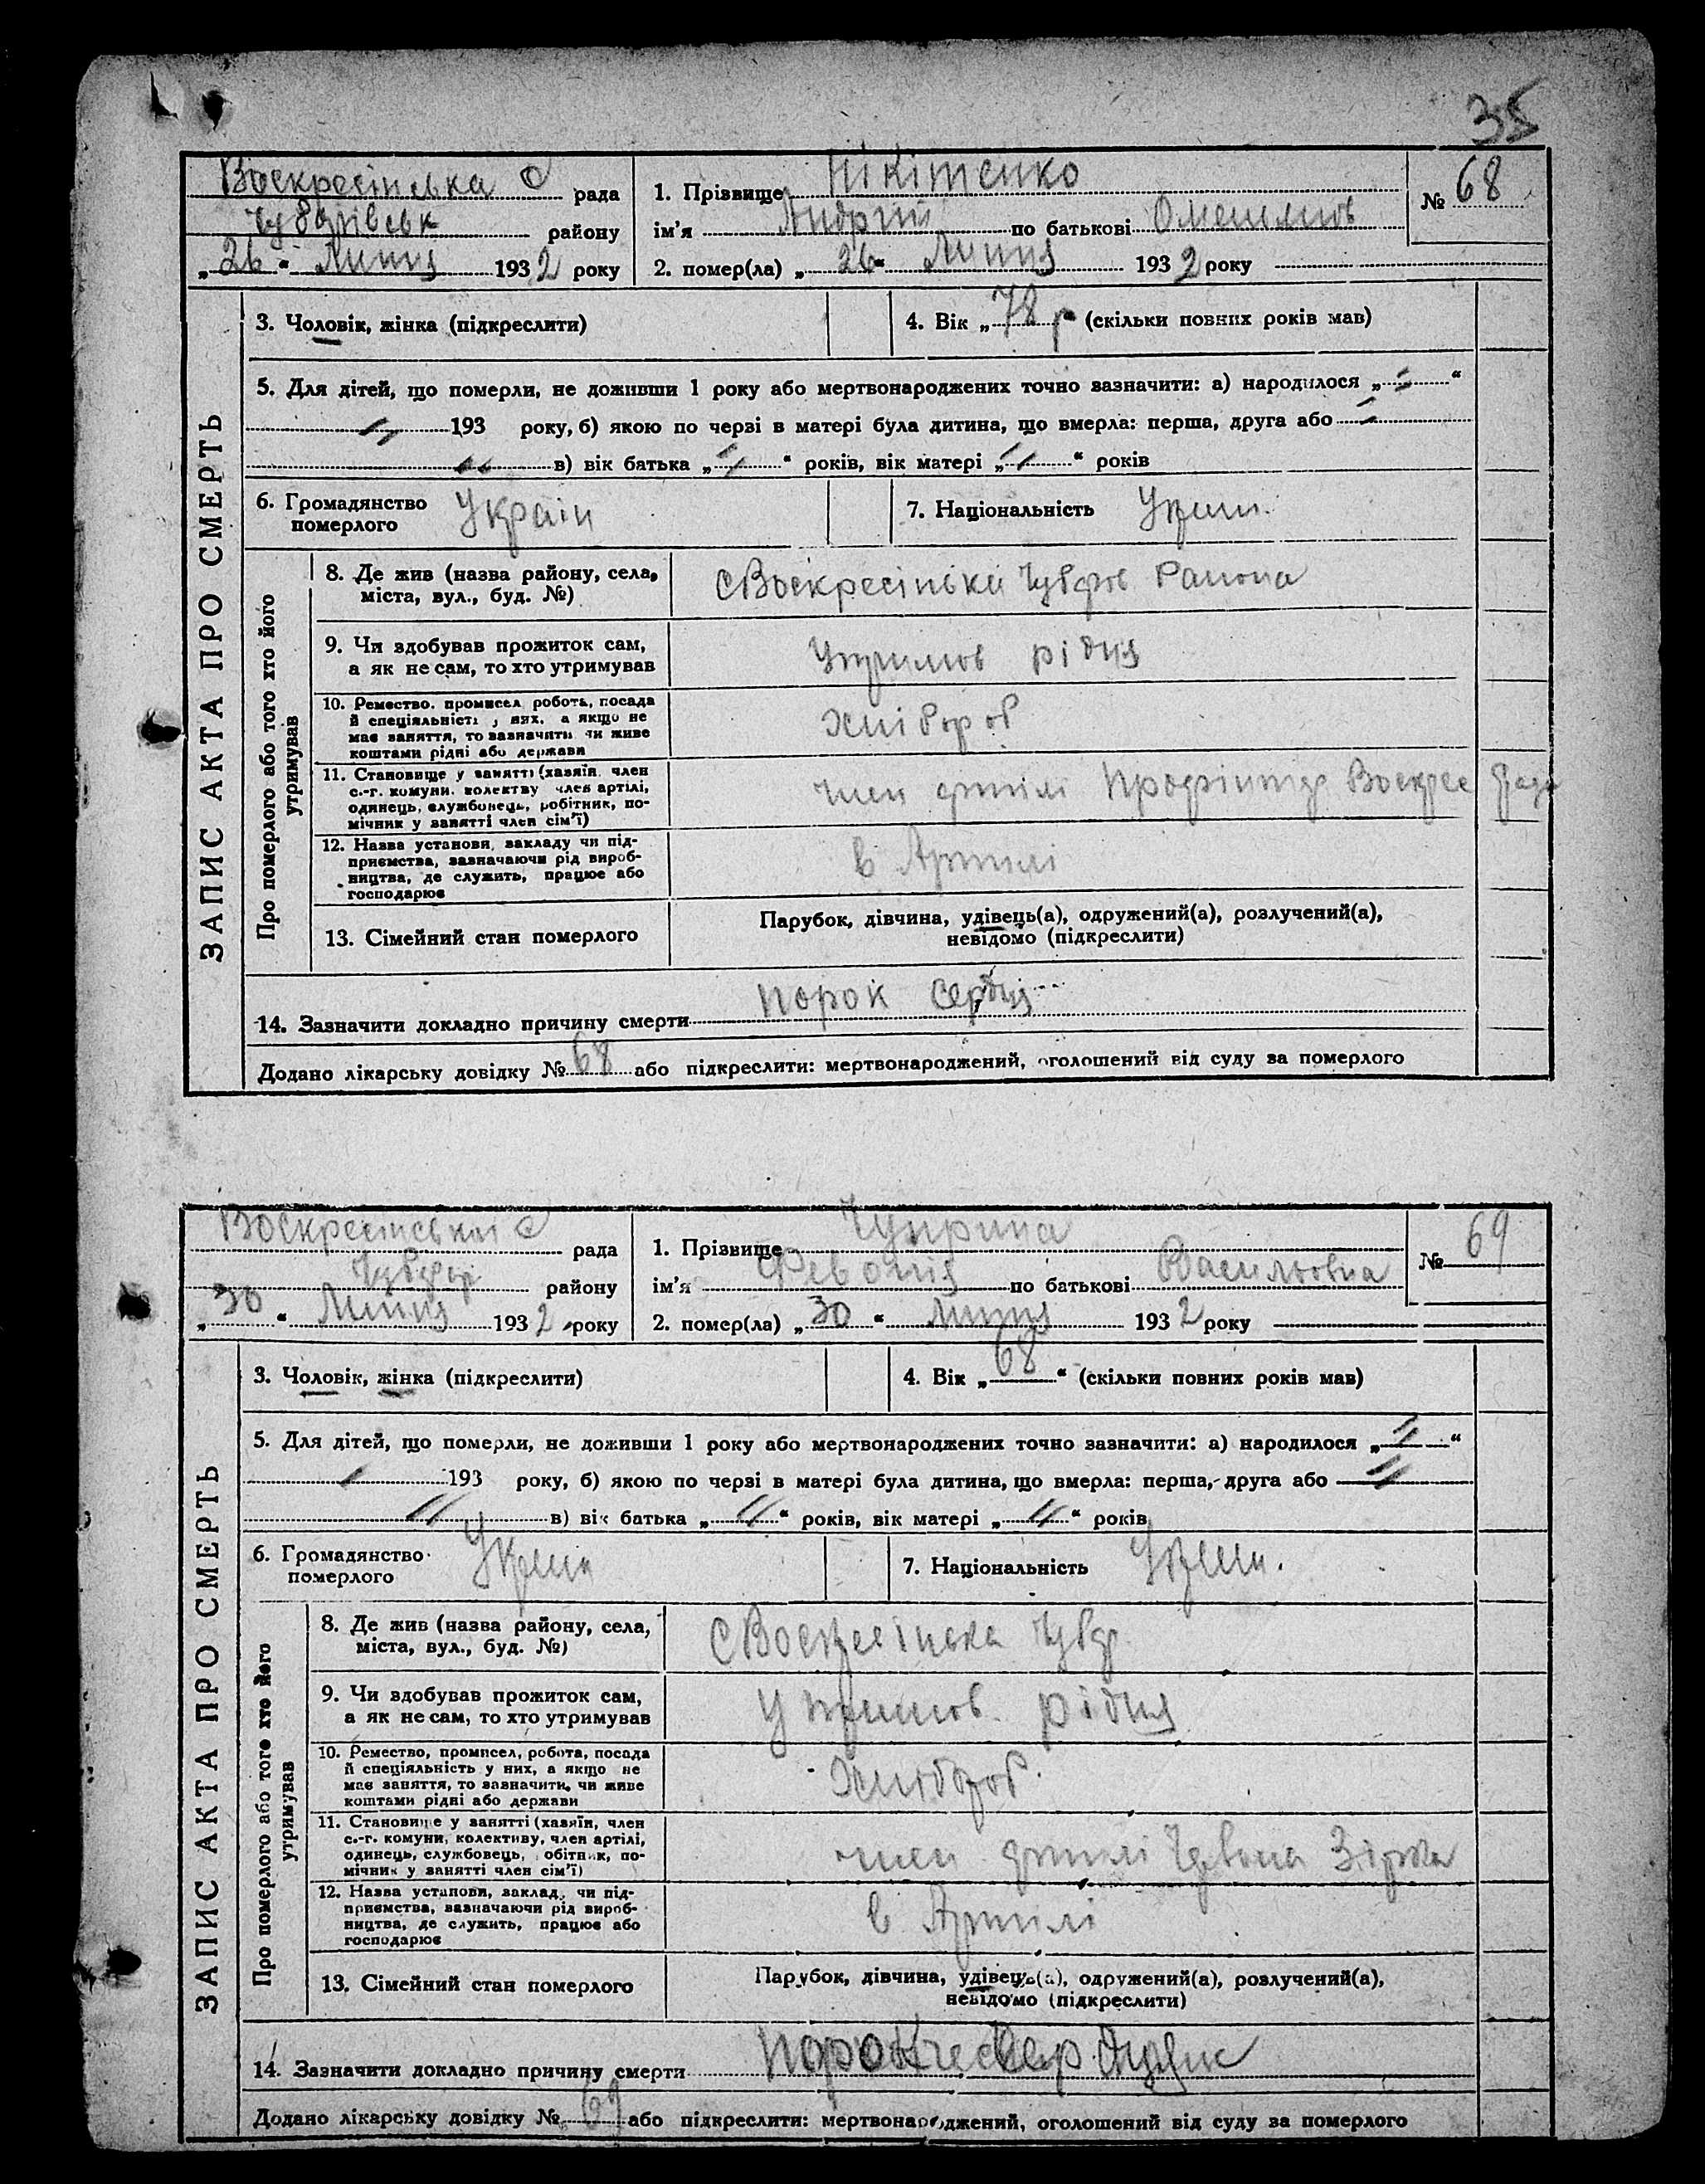 35
Воскресінська С рада
Чубарівськ району
„26“ Липня 1932 року
1. Прізвище Нікітенко
ім'я Андрій по батькові
2. помер(ла) „26“ Липня 1932 року
№ 68
ЗАПИС АКТА ПРО СМЕРТЬ
3. Чоловік, жінка (підкреслити)
4. Вік „78 р“ (скільки повних років мав)
5. Для дітей, що померли, не доживши 1 року або мертвонароджених точно зазначити: а) народилося „ “
193 року, б) якою по черзі в матері була дитина, що вмерла: перша, друга або
в) вік батька „ “ років, вік матері „ “ років
6. Громадянство
померлого
Україн
7. Національність Украи.
Про померлого або того хто його
утримував
8. Де жив (назва району, села,
міста, вул., буд. №)
С Воскресінька Чубарів Району
9. Чи здобував прожиток сам,
а як не сам, то хто утримував
Утримов рідня
10. Ремество, промисел, робота, посада
й спеціяльність у них, а якщо не
має заняття, то зазначити чи живе
коштами рідні або держави
Хлібороб
11. Становище у занятті (хазяїн, член
с.-г. комуни, колективу член артілі,
одинець, службовець, робітник, по-
мічник у занятті член сім'ї)
член артілі Профінтер Воскрес Рада
12. Назва установи, закладу чи під-
приємства, зазначаючи рід вироб-
ництва, де служить, працює або
господарює
в Артилі
13. Сімейний стан померлого
Парубок, дівчина, удівець(а), одружений(а), розлучений(а),
невідомо (підкреслити)
14. Зазначити докладно причину смерти порок сердця
Додано лікарську довідку № 68 або підкреслити: мертвонароджений, оголошений від суду за померлого
Воскресінської С рада
Чубар району
„30“ Липня 1932 року
1. Прізвище Чуприна
ім'я Февонія по батькові Василювна
2. помер(ла) „30“ липня 1932 року
№ 69
ЗАПИС АКТА ПРО СМЕРТЬ
3. Чоловік, жінка (підкреслити)
4. Вік „68“ (скільки повних років мав)
5. Для дітей, що померли, не доживши 1 року або мертвонароджених точно зазначити: а) народилося „ “
193 року, б) якою по черзі в матері була дитина, що вмерла: перша, друга або
в) вік батька „ “ років, вік матері „ “ років
6. Громадянство
померлого
Украін
7. Національність Украи.
Про померлого або того хто його
утримував
8. Де жив (назва району, села,
міста, вул., буд. №)
С Воскресінька Чубар
9. Чи здобував прожиток сам,
а як не сам, то хто утримував
Утримов. рідня
10. Ремество, промисел, робота, посада
й спеціяльність у них, а якщо не
має заняття, то зазначити, чи живе
коштами рідні або держави
Хлібороб.
11. Становище у занятті (хазяїн, член
с.-г. комуни, колективу, член артілі,
одинець, службовець, робітник, по-
мічник у занятті член сім'ї)
член артилі Червона Зірка
12. Назва установи, заклад, чи під-
приємства, зазначаючи рід вироб-
ництва, де служить, працює або
господарює
в Артилі
13. Сімейний стан померлого
Парубок, дівчина, удівець(а), одружений(а), розлучений(а),
невідомо (підкреслити)
14. Зазначити докладно причину смерти порок
Додано лікарську довідку № 69 або підкреслити: мертвонароджений, оголошений від суду за померлого